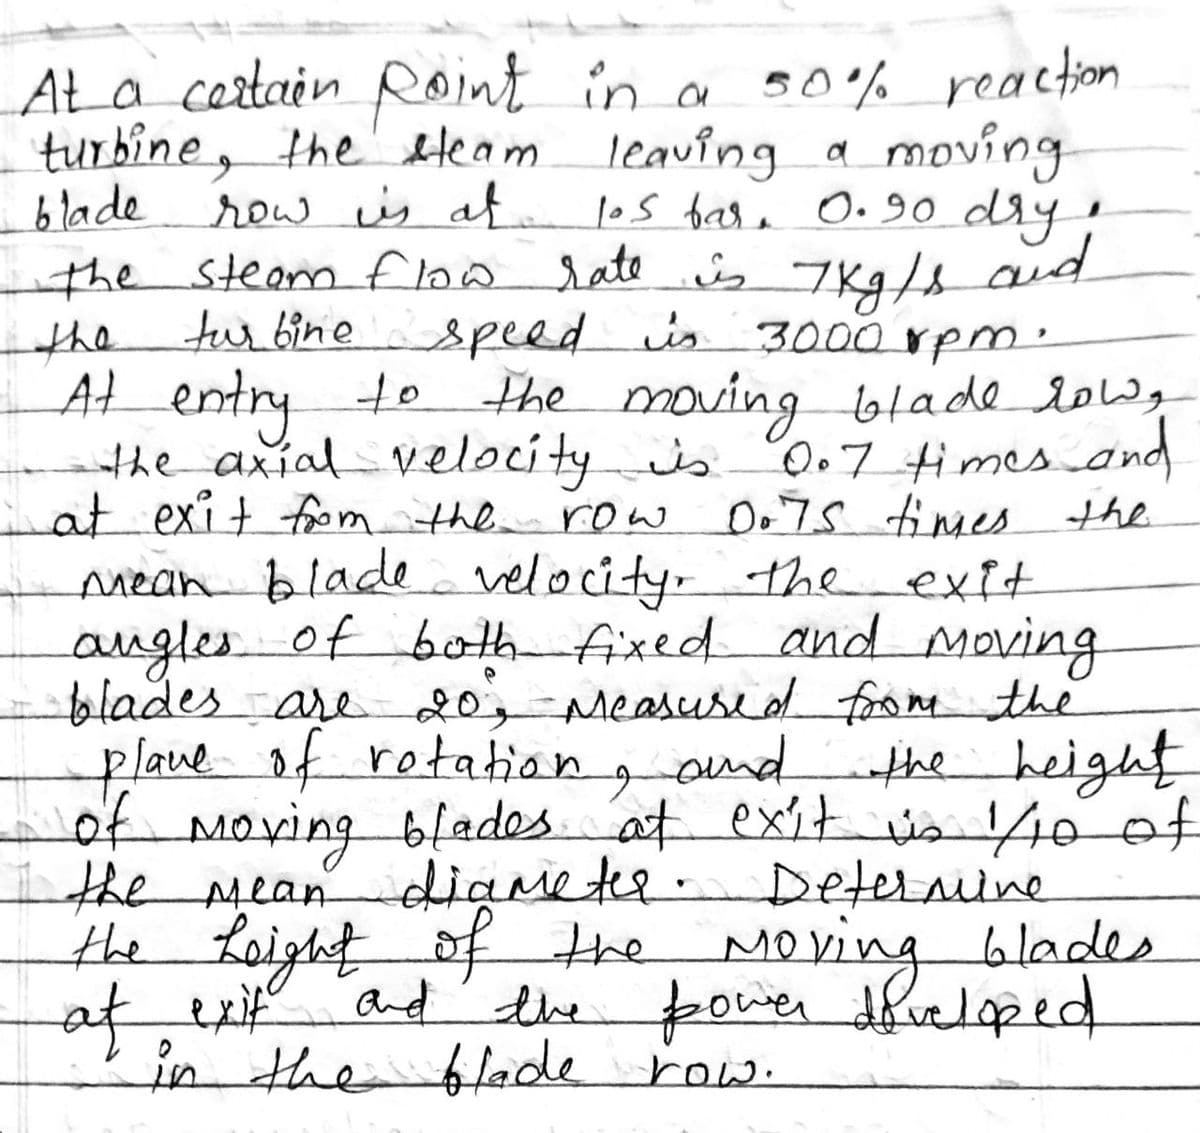 At a certain Point in a 50% reaction
turbine, the steam leaving a moving
blade row is at 1.5 bar. 0.90 dry.
the steam flow rate is 7Kg/s and
the turbine speed is 3000 rpm.
At entry to the moving blade row,
the axial velocity is 0.7 times and
at exit from the row 0.75 times the
mean blade velocity. the exit
angles of both fixed and moving
blades are 20°, measured from the
plane of rotation, and the height
of moving blades at exit is 1/10 of
the mean diameter. Determine
the height of the moving blades
at exit and the power developed
in the blade row.